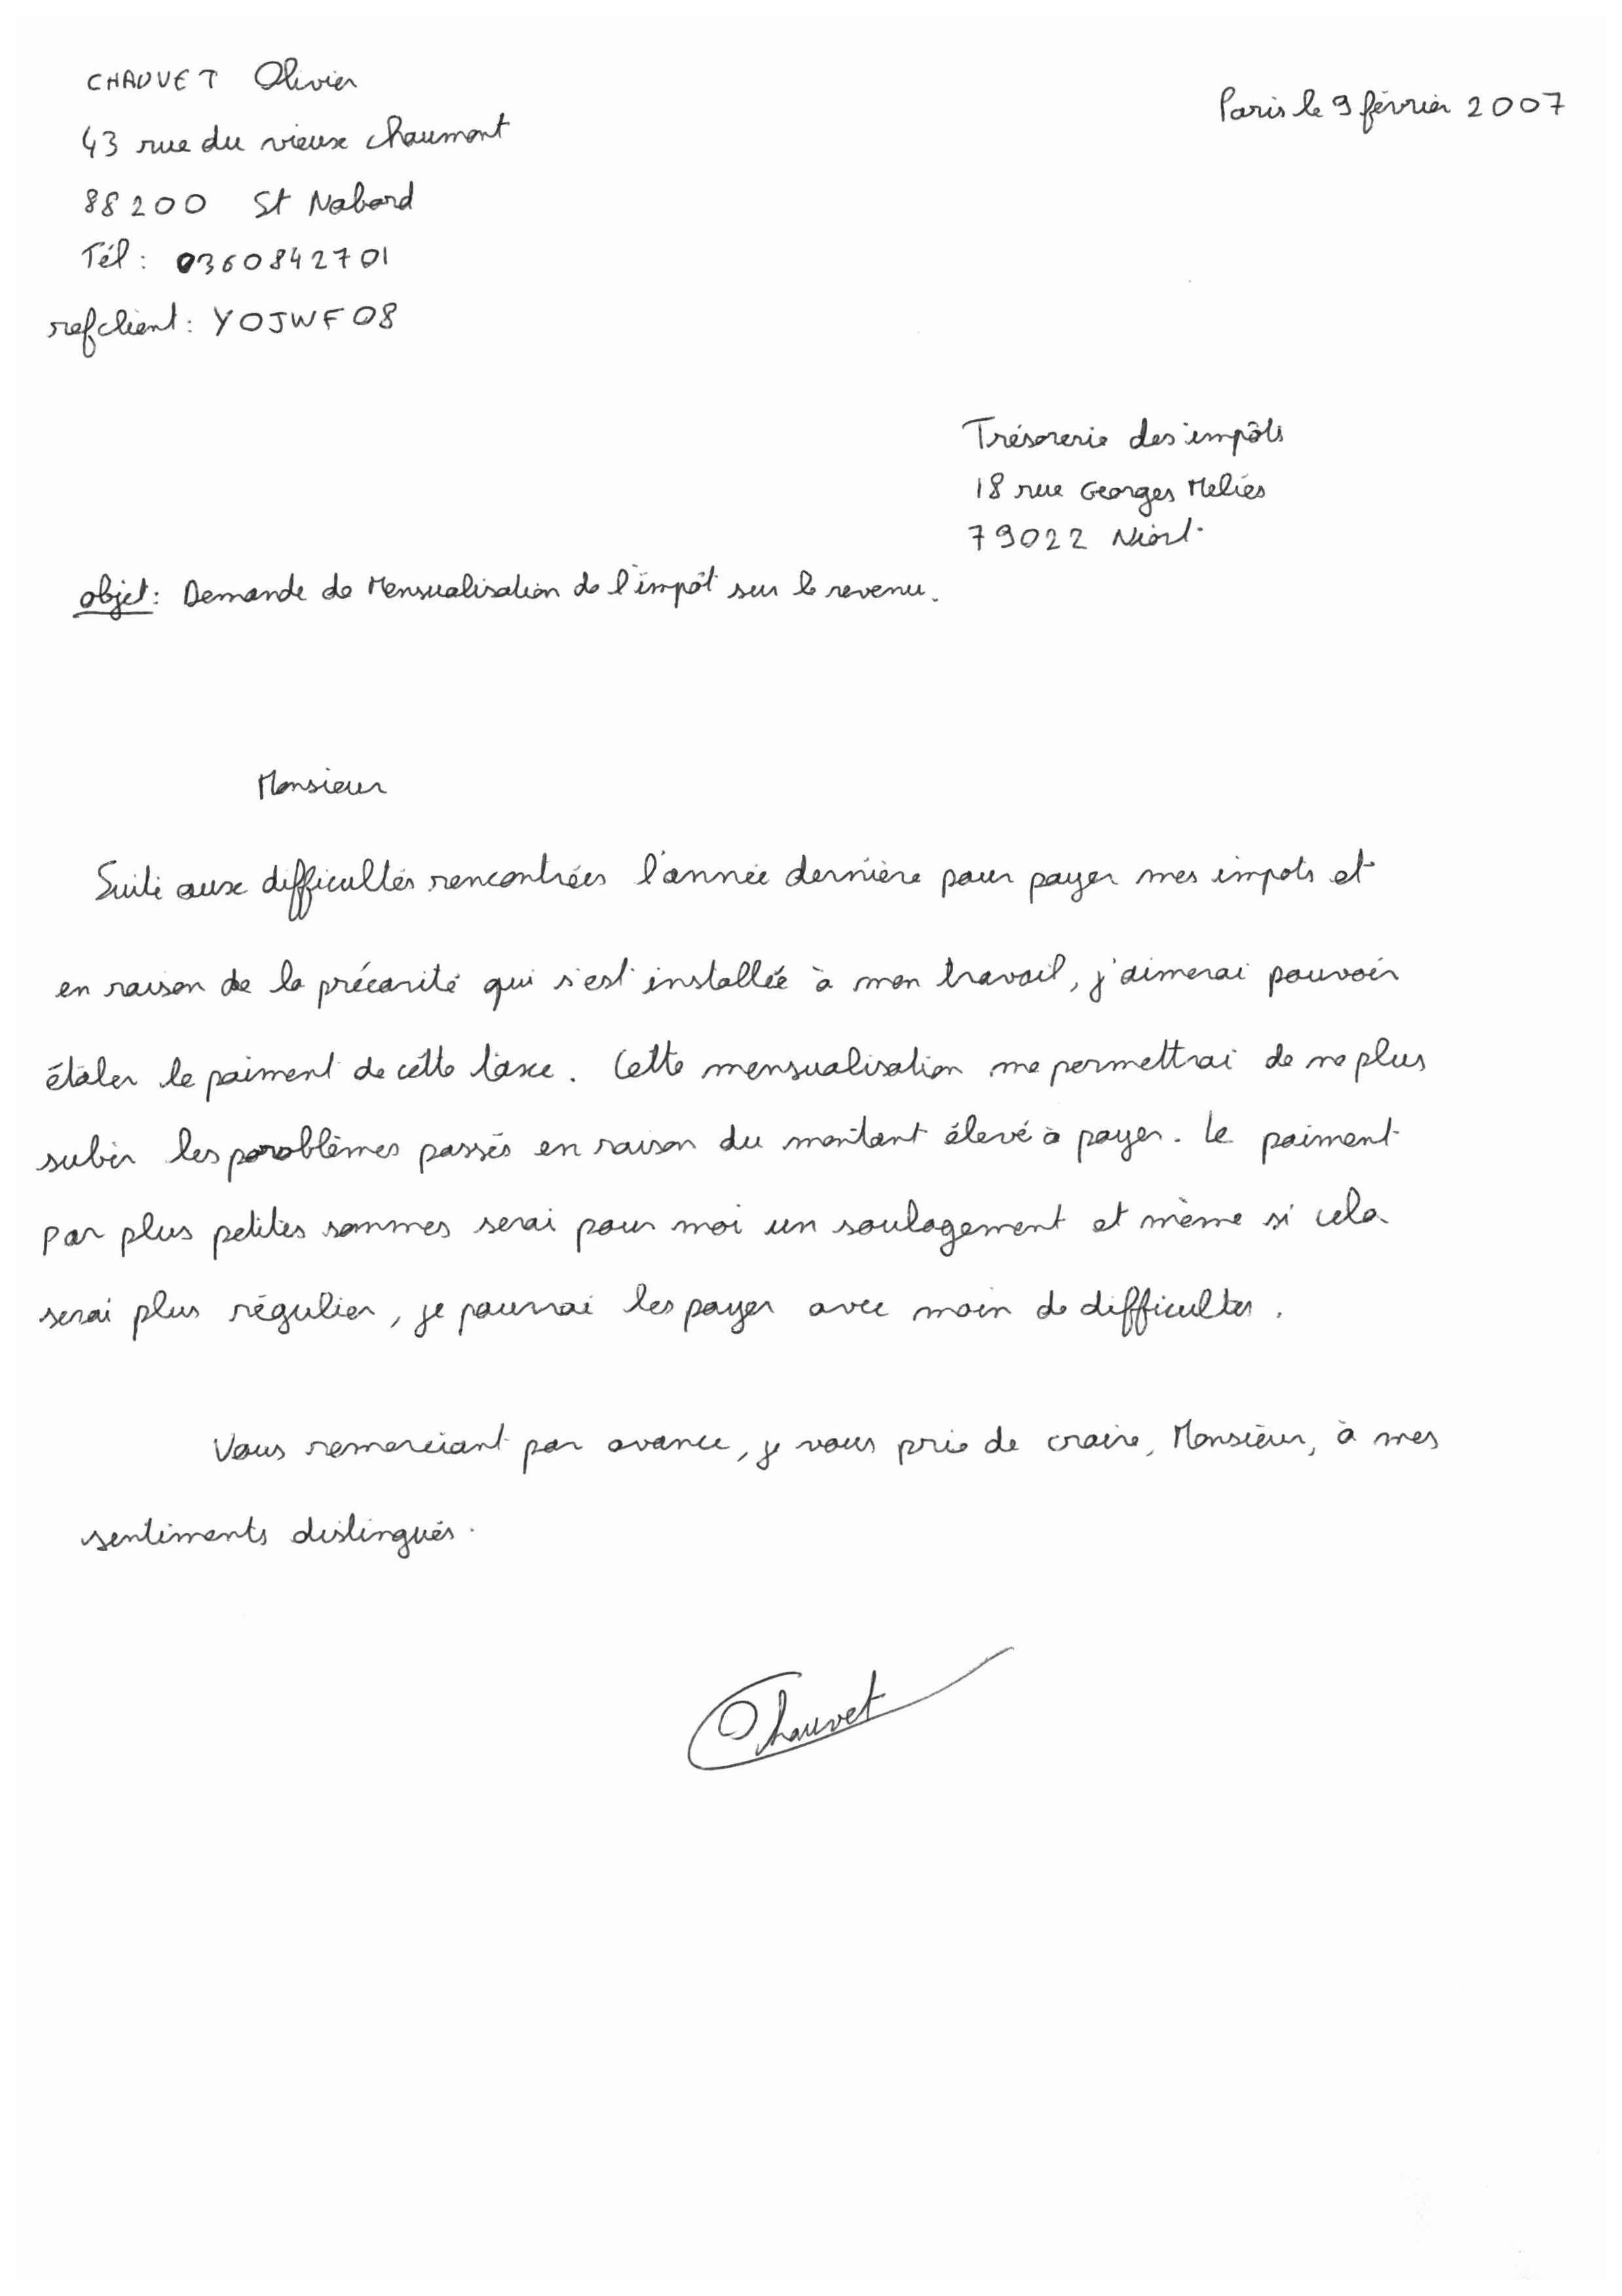 CHAUVET Olivier
Paris le 9 février 2007
43 rue du vieux chaumont
88200 St Nabord
Tél : 0360842701
ref client : YOJWF08
Trésorerie des impôts
18 rue Georges Meliès
79022 Niort
objet : Demande de Mensualisation de l'impôt sur le revenu.
Monsieur
Suite aux difficultés rencontrées l'année dernière pour payer mes impots et
en raison de la précarité qui s'est installée à mon travail, j'aimerai pouvoir
étaler le paiment de cette taxe. Cette mensualisation me permettrai de ne plus
subir les problèmes passés en raison du montant élevé à payer. Le paiment
par plus petites sommes serai pour moi un soulagement et même si cela
serai plus régulier, je pourrai les payer avec moin de difficultes.
Vous remerciant par avance, je vous prie de croire, Monsieur, à mes
sentiments distingués.
Chauvet